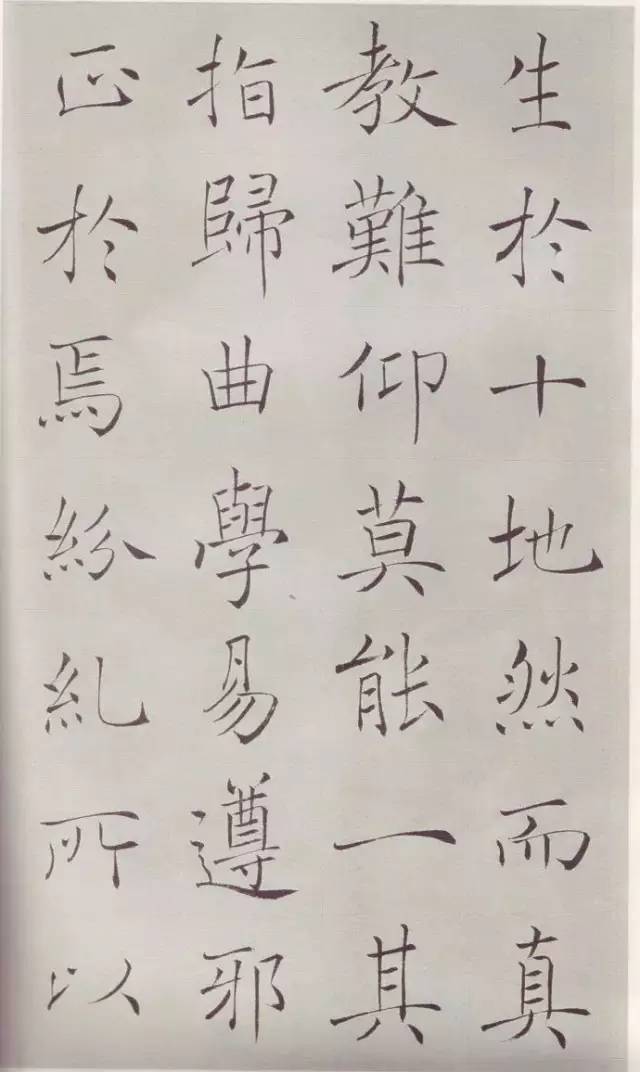 生於十地然而真
教難仰莫能一其
指歸曲學易遵邪
正於焉紛糺所以